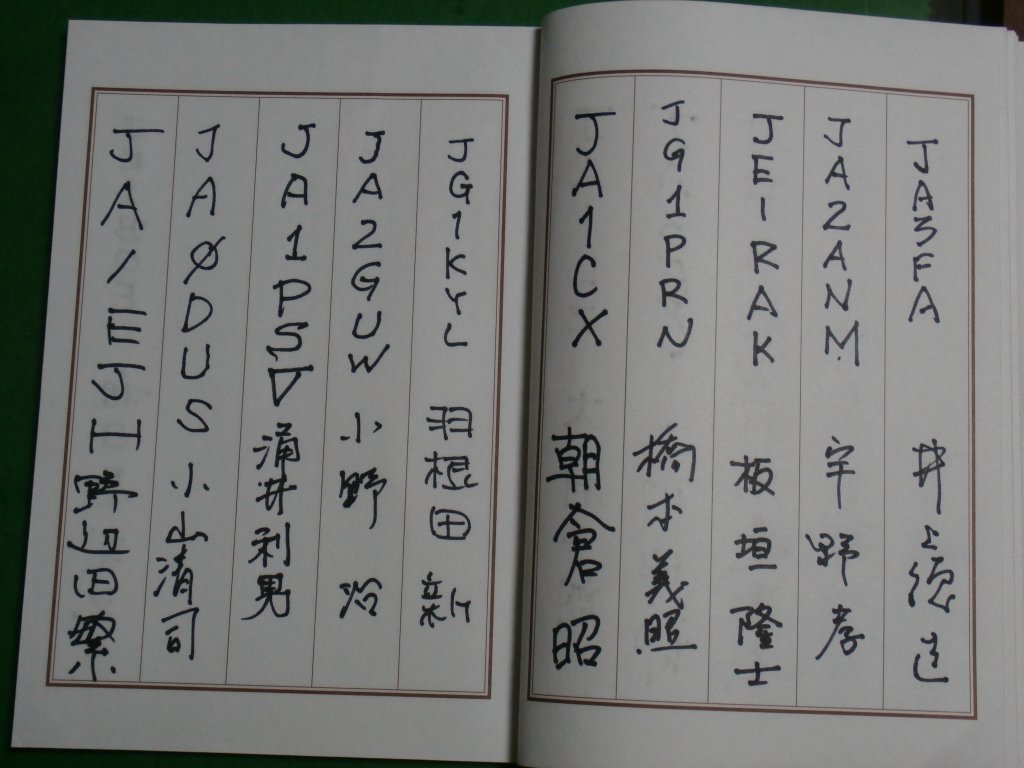 JA3FA 井上徳造
JA2ANM 宇野孝
JE1RAK 板垣隆士
JG1PRN 橋本義照
JA1CX 朝倉昭
JG1KYL 羽根田新
JA2GUW 小野 治
JA1PSV 涌井利男
JAØDUS 小山清司
JA1EJH 野辺田